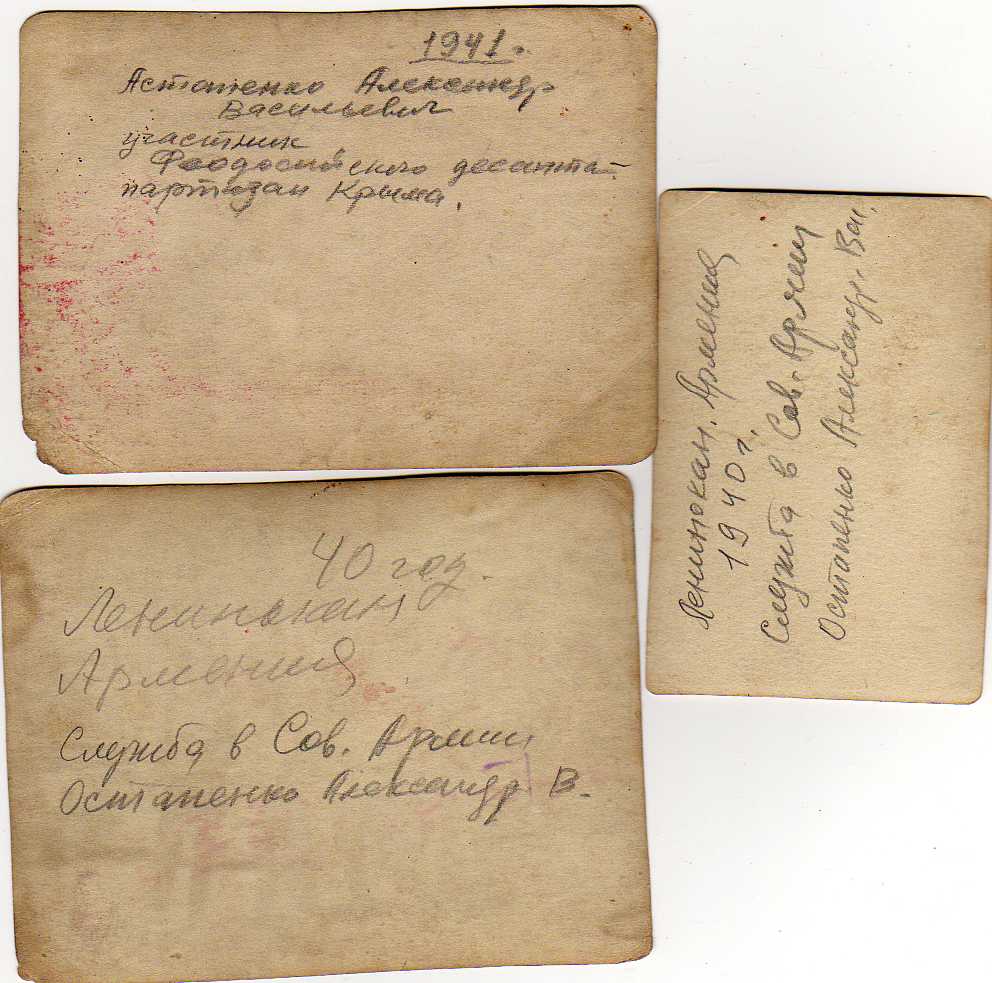 1941.
Астапенко Александр
Васильевич
участник
Феодосийского десанта-
партизан Крыма.
Ленинокан, Армения
1940 г.
Служба в Сов. Армии
Остапенко Александр. Вас.
40 год.
Ленинокан
Армения
Служба в Сов. Армии
Остапенко Александр В.